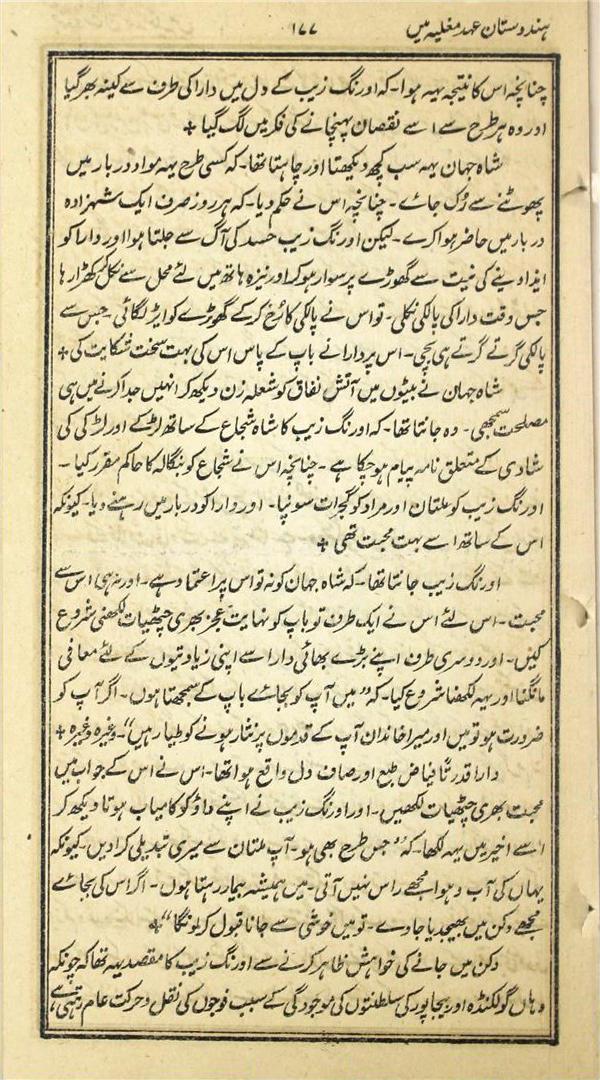 ہندوستان عہد مغلیہ میں ۱۷۷
چنانچہ اس کا نتیجہ یہہ ہوا۔ کہ اورنگ زیب کے دل میں دارا کی طرف سے کینہ بھر گیا
اور وہ ہر طرح سے اسے نقصان پہنچانے کی فکر میں لگ گیا +
شاہ جہان یہہ سب کچھ دیکھتا اور چاہتا تھا۔ کہ کسی طرح یہہ مواد دربار میں
پھوٹنے سے رُک جائے۔ چنانچہ اس نے حکم دیا۔ کہ ہر روز صرف ایک شہزادہ
دربار میں حاضر ہوا کرے۔ لیکن اورنگ زیب حسد کی آگ سے جلتا ہوا اور دارا کو
ایذا دینے کی نیت سے گھوڑے پر سوار ہو کر اور نیزہ ہاتھ میں لئے محل سے نکل کر کھڑا رہا
جس وقت دارا کی پالکی نکلی۔ تو اس نے پالکی کا رُخ کر کے گھوڑے کو ایڑ لگائی جس سے
پالکی گرتے گرتے ہی بچی۔ اس پر دارا نے باپ کے پاس اس کی بہت سخت شکایت کی +
شاہ جہان نے بیٹوں میں آتش نفاق کو شعلہ زن دیکھ کر انہیں جدا کرنے میں ہی
مصلحت سمجھی۔ وہ جانتا تھا۔ کہ اورنگ زیب کا شاہ شجاع کے ساتھ لڑکے اور لڑکی کی
شادی کے متعلق نامہ پیام ہو چکا ہے۔ چنانچہ اس نے شجاع کو بنگالہ کا حاکم مقرر کیا۔
اورنگ زیب کو ملتان اور مراد کو گجرات سونپا۔ اور دارا کو دربار میں رہنے دیا۔ کیونکہ
اس کے ساتھ اسے بہت محبت تھی +
اورنگ زیب جانتا تھا۔ کہ شاہ جہان کو نہ تو اس پر اعتماد ہے۔ اور نہ ہی اس سے
محبت۔ اس لئے اس نے ایک طرف تو باپ کو نہایت عجز بھری چٹھیات لکھنی شروع
کیں۔ اور دوسری طرف اپنے بڑے بھائی دارا سے اپنی زیادتیوں کے لئے معافی
مانگنا اور یہہ لکھنا شروع کیا۔ کہ ”میں آپ کو بجائے باپ کے سمجھتا ہوں۔ اگر آپ کو
ضرورت ہو تو میں اور میرا خاندان آپ کے قدموں پر نثار ہونے کو طیار ہیں“۔ وغیرہ وغیرہ +
دارا قدرتاً فیاض طبع اور صاف دل واقع ہوا تھا۔ اس نے اس کے جواب میں
محبت بھری چٹھیات لکھیں۔ اور اورنگ زیب نے اپنے داؤ کو کامیاب ہوتا دیکھ کر
اسے اخیر میں یہہ لکھا۔ کہ ”جس طرح بھی ہو۔ آپ ملتان سے میری تبدیلی کرا دیں۔ کیونکہ
یہاں کی آب و ہوا مجھے راس نہیں آتی۔ میں ہمیشہ بیمار رہتا ہوں۔ اگر اس کی بجائے
مجھے دکن میں بھیج دیا جاوے۔ تو میں خوشی سے جانا قبول کر لونگا“ +
دکن میں جانے کی خواہش ظاہر کرنے سے اورنگ زیب کا مقصد یہہ تھا کہ چونکہ
وہاں گولکنڈہ اور بیجاپور کی سلطنتوں کی موجودگی کے سبب فوجوں کی نقل و حرکت عام رہتی ہے